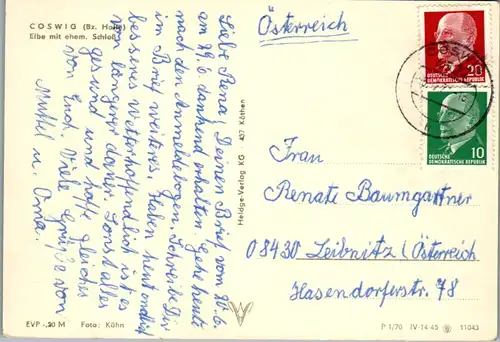 COSWIG (Bz. Halle)
Elbe mit ehem. Schloß
Österreich
Liebe Rena! Deinen Brief vom 20.6.
am 29.6. dankend erhalten. Gehe heute
nach den Anmeldebogen. Schreibe Dir
im Brief weiteres. Haben heut endlich
besseres Wetter, hoffendlich ist es
von längerer dauer. Sonst alles
gesund und hoffe gleiches
von Euch. Viele Grüße von
Muttel u. Oma.
Heldge-Verlag KG 437 Köthen
COSWIG
20
DEUTSCHE
DEMOKRATISCHE REPUBLIK
10
DEUTSCHE
DEMOKRATISCHE REPUBLIK
Frau
Renate Baumgartner
08430 Leibnitz/Österreich
Hasendorferstr. 78
EVP -,20 M Foto: Kühn
P 1/70 IV-14-45 11043